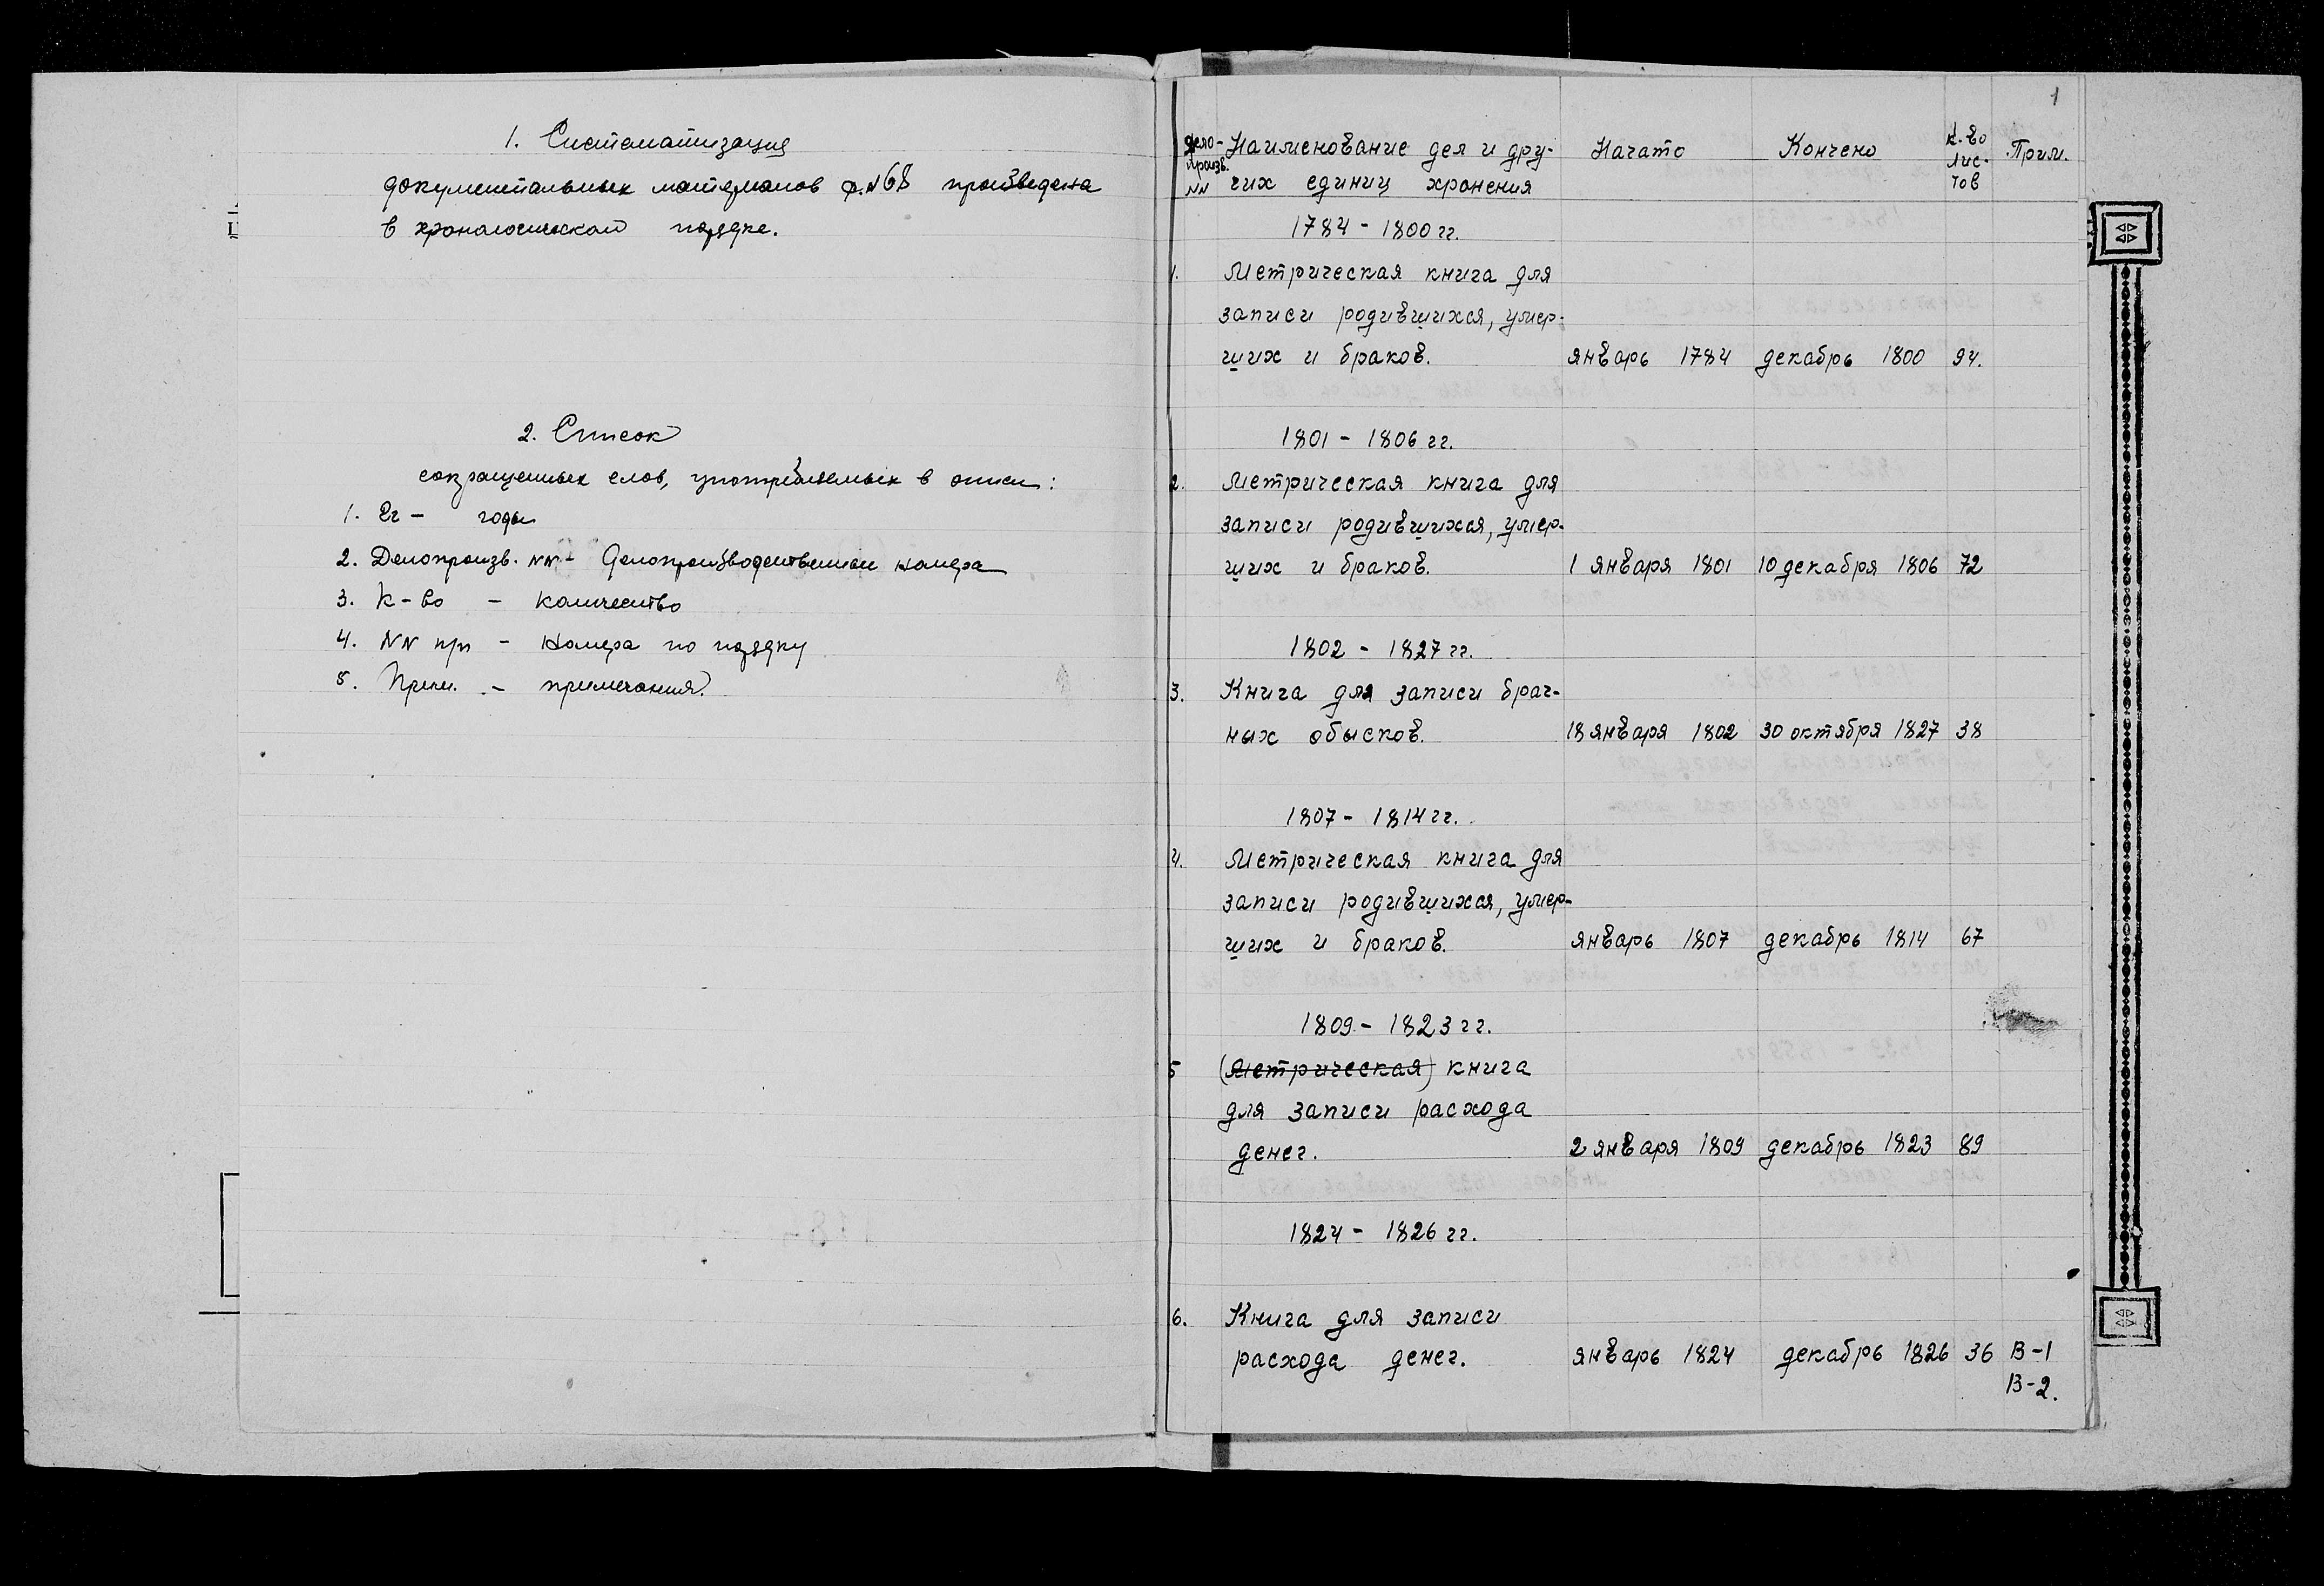 1. Систематизация
документальных материалов ф.№68 произведена
в хронологическом порядке.
2. Список
сокращенных слов, употребляемых в описи:
1. Гг - годы
2. Делопроизв. NN - Делопроизводственные номера
3. К-во - количество
4. NN п/п - Номера по порядку
5. Прим. - примечания.
1
Дело-произв. NN | Наименование дел и дру- | Начато | Кончено | К-во лис-тов | Прим.
гих единиц хранения
1784 - 1800 гг.
1. Метрическая книга для
записи родившихся, умер-
ших и браков. январь 1784 декабрь 1800 94.
1801 - 1806 гг.
2. Метрическая книга для
записи родившихся, умер-
ших и браков. 1 января 1801 10 декабря 1806 72
1802 - 1827 гг.
3. Книга для записи брач-
ных обысков. 18 января 1802 30 октября 1827 38
1807 - 1814 гг.
4. Метрическая книга для
записи родившихся, умер-
ших и браков. январь 1807 декабрь 1814 67
1809 - 1823 гг.
5 (Метрическая) книга
для записи расхода
денег. 2 января 1809 декабрь 1823 89
1824 - 1826 гг.
6. Книга для записи
расхода денег. январь 1824 декабрь 1826 36 В-1
В-2.